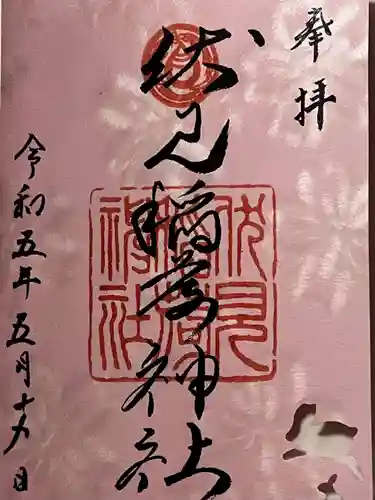 奉拝
伏見稲荷神社
伏見
稲荷
神社
令和五年五月十日